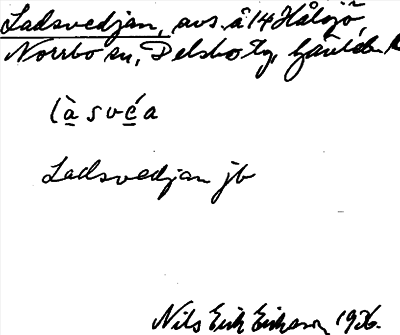 Ladsvedjan, avs. å 14 Hålsjö
Norrbo sn, Delsbo tg, Gävleb. l
làsvéa
Ladsvedjan jb
Nils Erik Eriksson 1936.